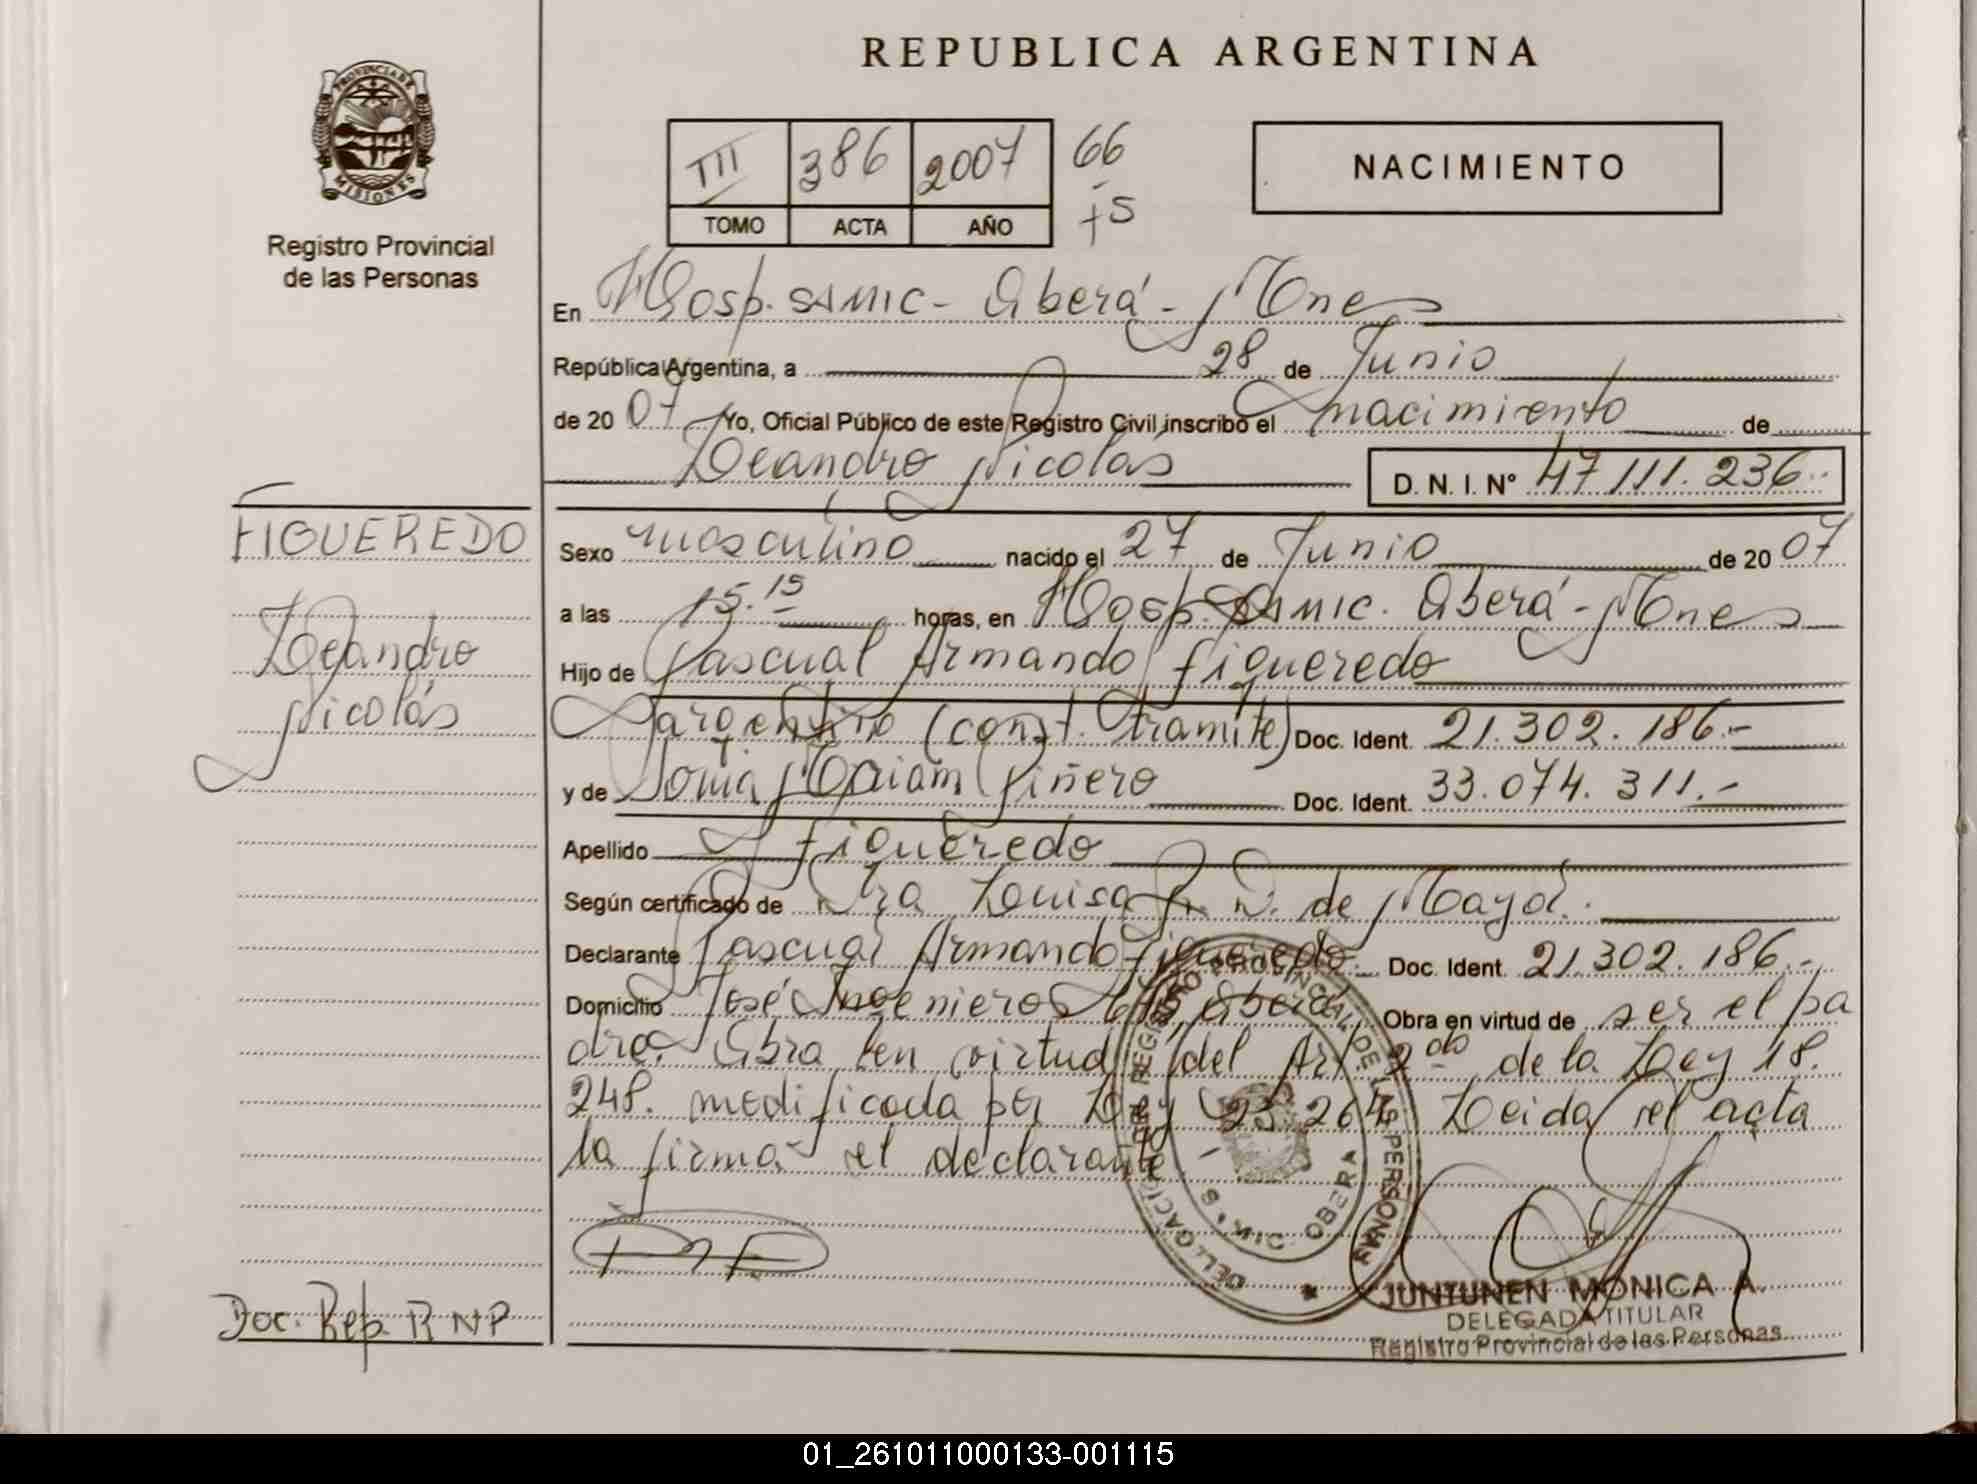 REPUBLICA ARGENTINA
PROVINCIA DE
MISIONES
Registro Provincial
de las Personas
TIII 386 2007 66
TOMO ACTA AÑO +5
NACIMIENTO
En Hosp. SAMIC - Oberá - Mnes
República Argentina, a 28 de Junio
de 20 07 Yo, Oficial Público de este Registro Civil inscribo el nacimiento de
Leandro Nicolás D. N. I. N° 47 111. 236.-
FIGUEREDO
Leandro
Nicolás
Sexo masculino nacido el 27 de Junio de 20 07
a las 15.15 horas, en Hosp. SAMIC. Oberá - Mnes
Hijo de Pascual Armando Figueredo
argentino (const. tramite) Doc. Ident. 21.302.186.-
y de Sonia Piñero Doc. Ident. 33.074.311.-
Apellido Figueredo
Según certificado de Dra Luisa de Mayol.
Declarante Pascual Armando Figueredo Doc. Ident. 21.302.186.-
Domicilio José Ingenieros Oberá Obra en virtud de ser el pa
dre. Obra en virtud del Art. 2do de la Ley 18.
248. modificada por Ley 23.264 Leida el acta
la firma el declarante -
DELEGACION DEL REGISTRO PROVINCIAL DE LAS PERSONAS
S.A.MIC - OBERA
JUNTUNEN MONICA A.
DELEGADA TITULAR
Registro Provincial de las Personas
Doc. Rep. R NP
01_261011000133-001115